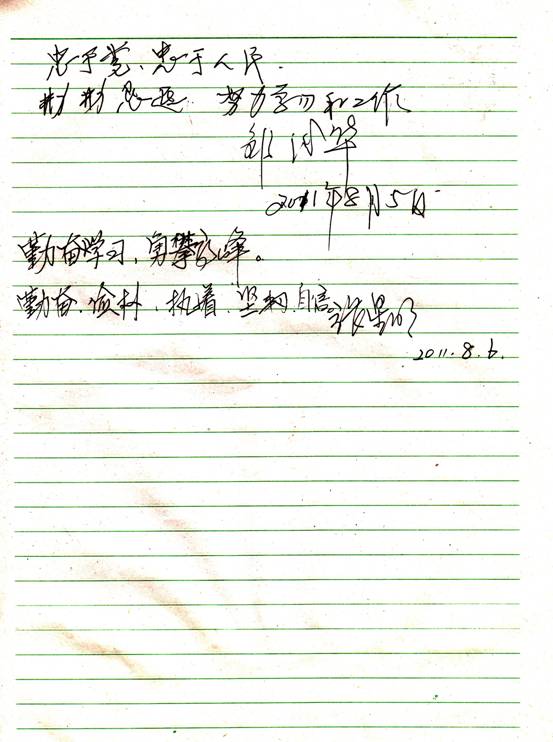 忠于党、忠于人民.
努力学习和工作
2011年8月5日
勤奋学习，勇攀高峰。
勤奋、俭朴、执着、坚韧、自信。
2011.8.6.